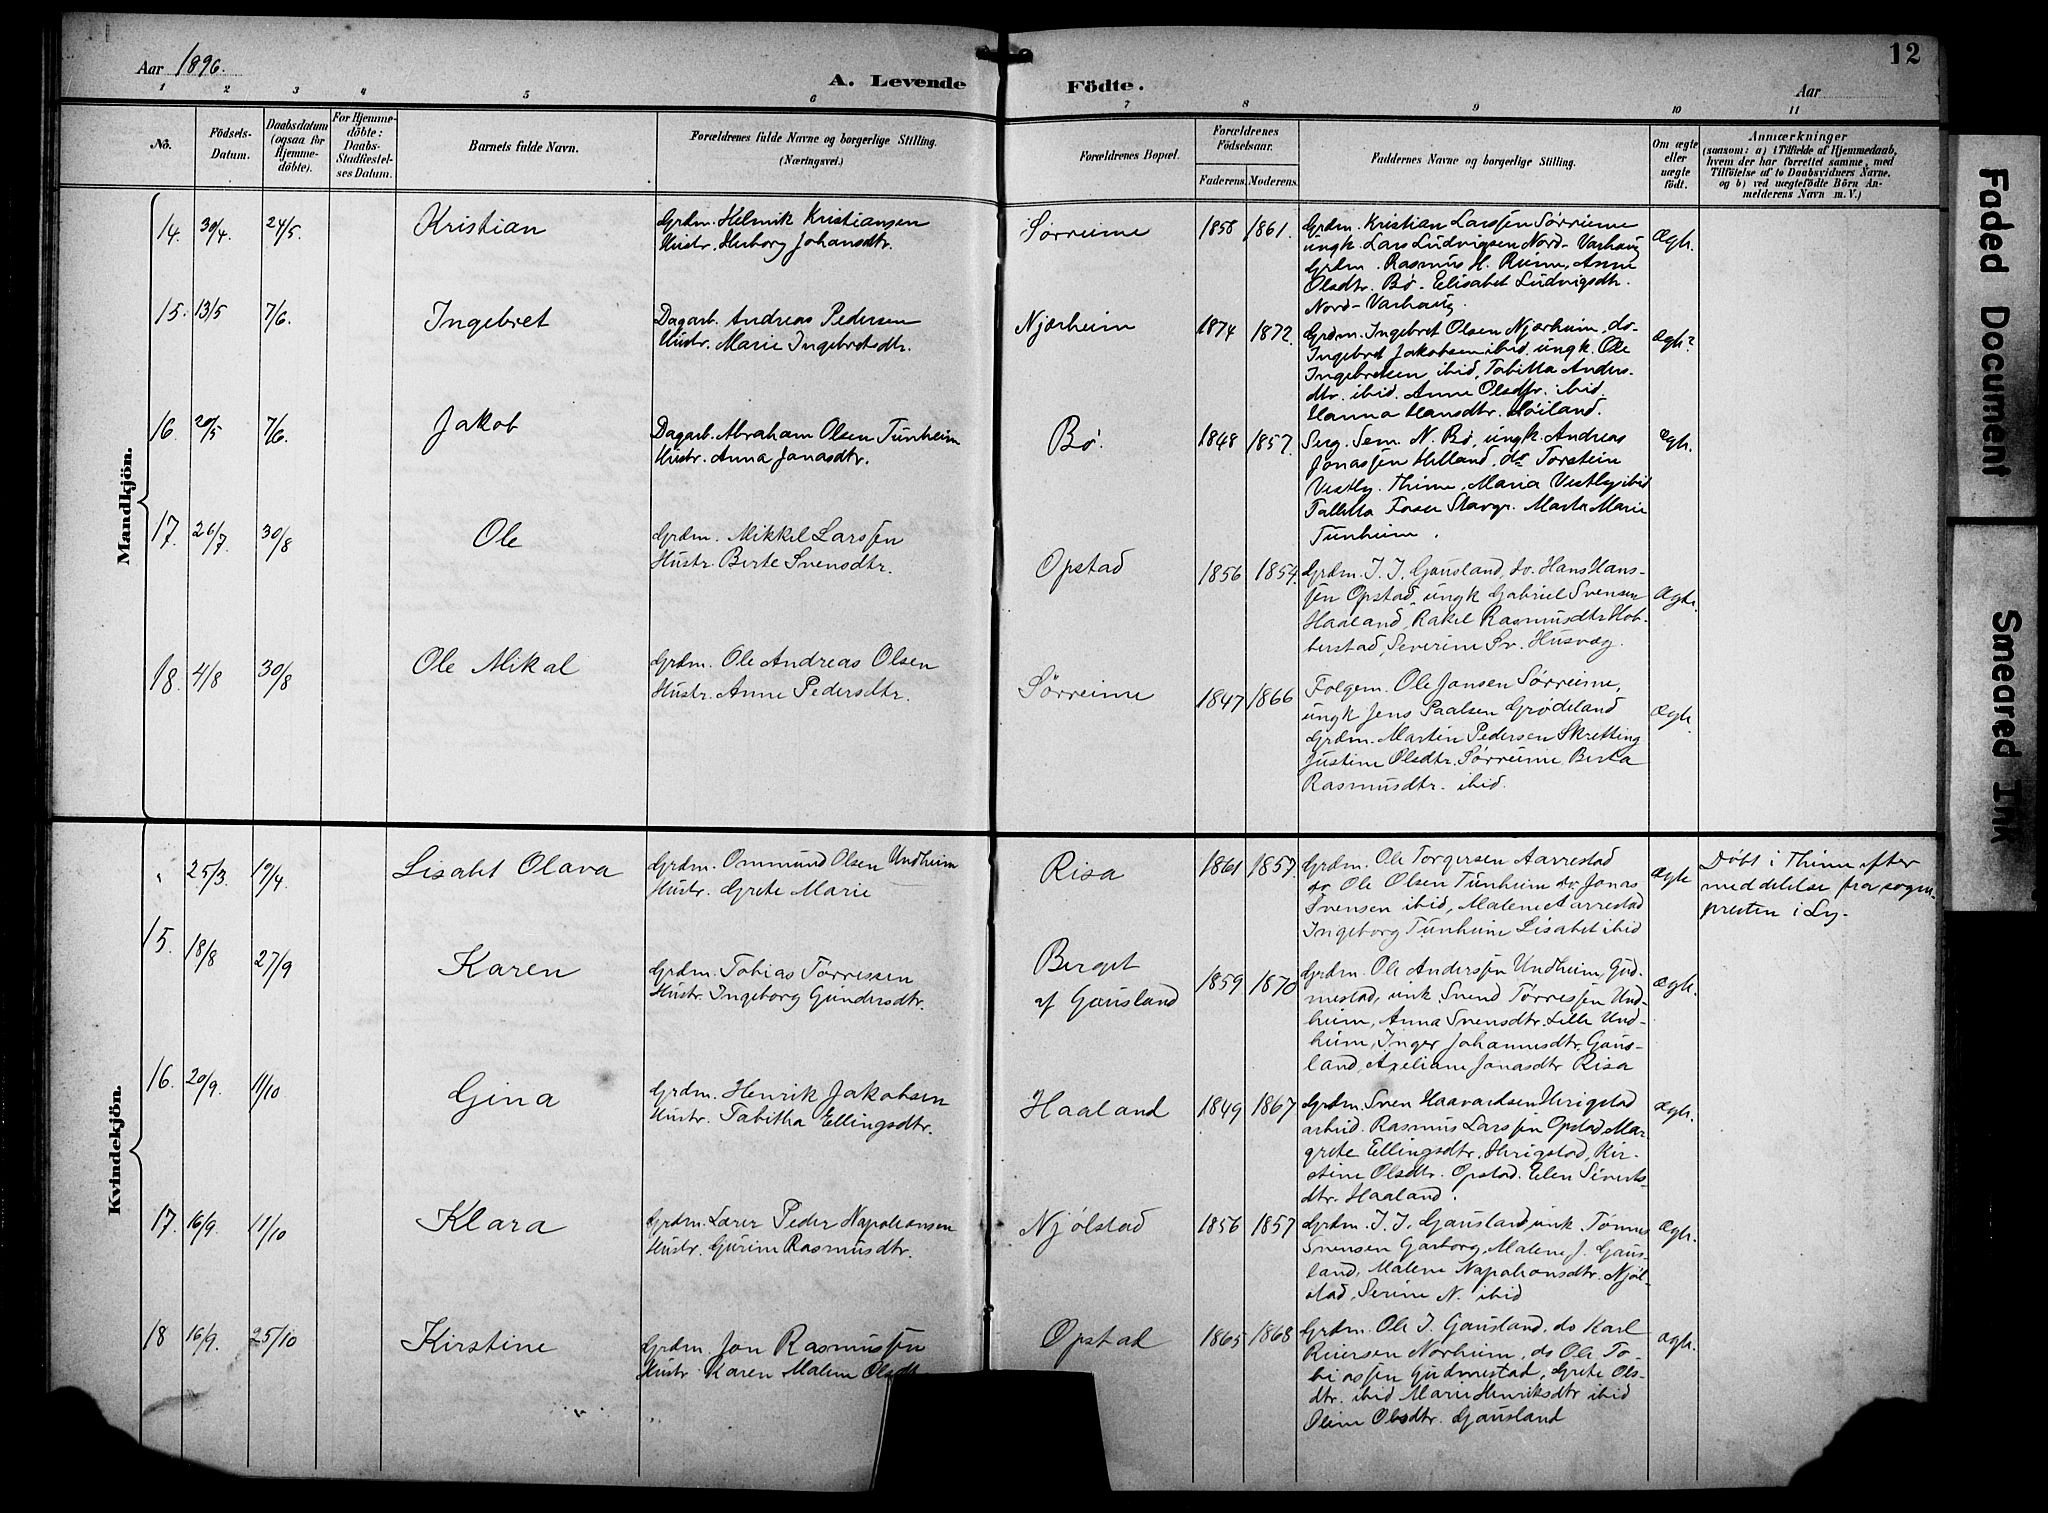 Aar 1896.
A. Levende Födte.
12
Aar
1 2 3 4 5 6 7 8 9 10 11
No.
Födsels-Datum.
Daabsdatum (ogsaa for Hjemme-döbte).
For Hjemme-döbte: Daabs-Stadfæstel-ses Datum.
Barnets fulde Navn.
Forældrenes fulde Navne og borgerlige Stilling.
(Næringsvei.)
Forældrenes Bopæl.
Forældrenes Födselsaar.
Faderens. Moderens.
Faddernes Navne og borgerlige Stilling.
Om ægte eller uægte födt.
Anmærkninger
(saasom: a) i Tilfælde af Hjemmedaab,
hvem der har forrettet samme, med
Tilföielse af to Daabsvidners Navne.
og b) ved uægtefödte Börn An-
melderens Navn m. V.)
Mandkjön.
14. 30/4. 24/5. Kristian
Grdm. Helmik Kristiansen
Hustr. Herborg Johansdtr.
Sørreime 1858 1861.
Grdm. Kristian Larssen Sørreime
ungk. Lars Ludvigsen Nord-Varhaug
Grdm. Rasmus H. Reime, Anne
Olsdtr. Bø. Elisabet Ludvigsdtr.
Nord-Varhaug.
Ægt.
15. 13/5 7/6. Ingebret
Dagarb. Andreas Pedersen
Hustr. Marie Ingebretsdtr.
Njærheim 1874 1872.
Grdm. Ingebret Olsen Njærheim, do.
Ingebret Jakobsen ibid. ungk. Ole
Ingebretsen ibid, Tabitta Anders-
dtr. ibid. Anne Olsdtr. ibid
Hanna Hansdtr. Høiland.
Ægt.
16. 20/5 7/6. Jakob
Dagarb. Abraham Olsen Tunheim
Hustr. Anna Jonasdtr.
Bø. 1848 1857.
Serg. Sem. N. Bø, ungk. Andreas
Jonassen Helland, do Torstein
Vestly. Thime, Maria Vestly ibid
Talletta Fosse Stavgr. Marta Marie
Tunheim.
ægt.
17. 26/7. 30/8 Ole
Grdm. Mikkel Larssen
Hustr. Berte Svensdtr.
Opstad 1856 1854.
Grdm. J. J. Gausland, do. Hans Hans-
sen Opstad, ungk Gabriel Svensen
Haaland, Rakel Rasmusdtr. Hob-
berstad, Severine Sv. Husvæg.
Ægt.
18. 4/8 30/8 Ole Mikal
Grdm. Ole Andreas Olsen
Hustr. Anne Pedersdtr.
Sørreime 1847 1866
Folgem. Ole Jansen Sørreime,
ungk Jens Paalsen Grødeland
Grdm. Martin Pedersen Skretting
Justine Olsdtr. Sørreime, Berta
Rasmusdtr. ibid.
Ægt.
Kvindekjön.
25/3. 19/4. Lisabet Olava
Grdm. Ommund Olsen Undheim
Hustr. Grete Marie
Risa 1861 1857
Grdm. Ole Torgersen Aarrestad
do Ole Olsen Tunheim do. Jonas
Svensen ibid, Malene Aarrestad
Ingeborg Tunheim Lisabet ibid
Ægt
Døbt i Thime efter
meddelelse fra sogne-
presten i Ly-
15. 18/8 27/9 Karen
Grdm. Tobias Tørressen
Hustr. Ingeborg Gundersdtr.
Berget
af Gausland 1859 1870
Grdm. Ole Anderssen Undheim, Gud-
mestad, unk. Svend Tørressen Und-
heim, Anna Svensdtr. Lille Und-
heim, Inger Johannesdtr. Gaus-
land, Axeliane Jonasdtr Risa
Ægt.
16. 20/9. 11/10 Gina
Grdm. Henrik Jakobsen
Hustr. Tabitha Ellingsdtr.
Haaland 1849 1867
Grdm. Sven Haavardsen Herigstad
arbeid. Rasmus Larssen Opstad, Mar-
grete Ellingsdtr. Herigstad, Kir-
stine Olsdtr. Opstad. Elen Siverts-
dtr. Haaland.
Ægt.
17. 16/9. 11/10 Klara
Grdm. Lærer Peder Napoleonsen
Hustr. Gurine Rasmusdtr.
Njølstad 1856 1857
Grdm. J. J. Gausland unk. Tønnes
Svensen Garborg, Malene J. Gaus-
land, Malene Napoleonsdtr. Njøl-
stad, Serine N. ibid
Ægt.
18 16/9. 25/10 Kirstine
Grdm. Jon Rasmussen
Hustr Karen Malene Olsdtr.
Opstad 1865 1868
Grdm. Ole J. Gausland, do Karl
Reiersen Norheim, do Ole To-
biassen Gudmestad, Grete Ols-
dtr. ibid Marie Henriksdtr ibid
Oline Olsdtr. Gausland
ægt.
Faded Document
Smeared Ink